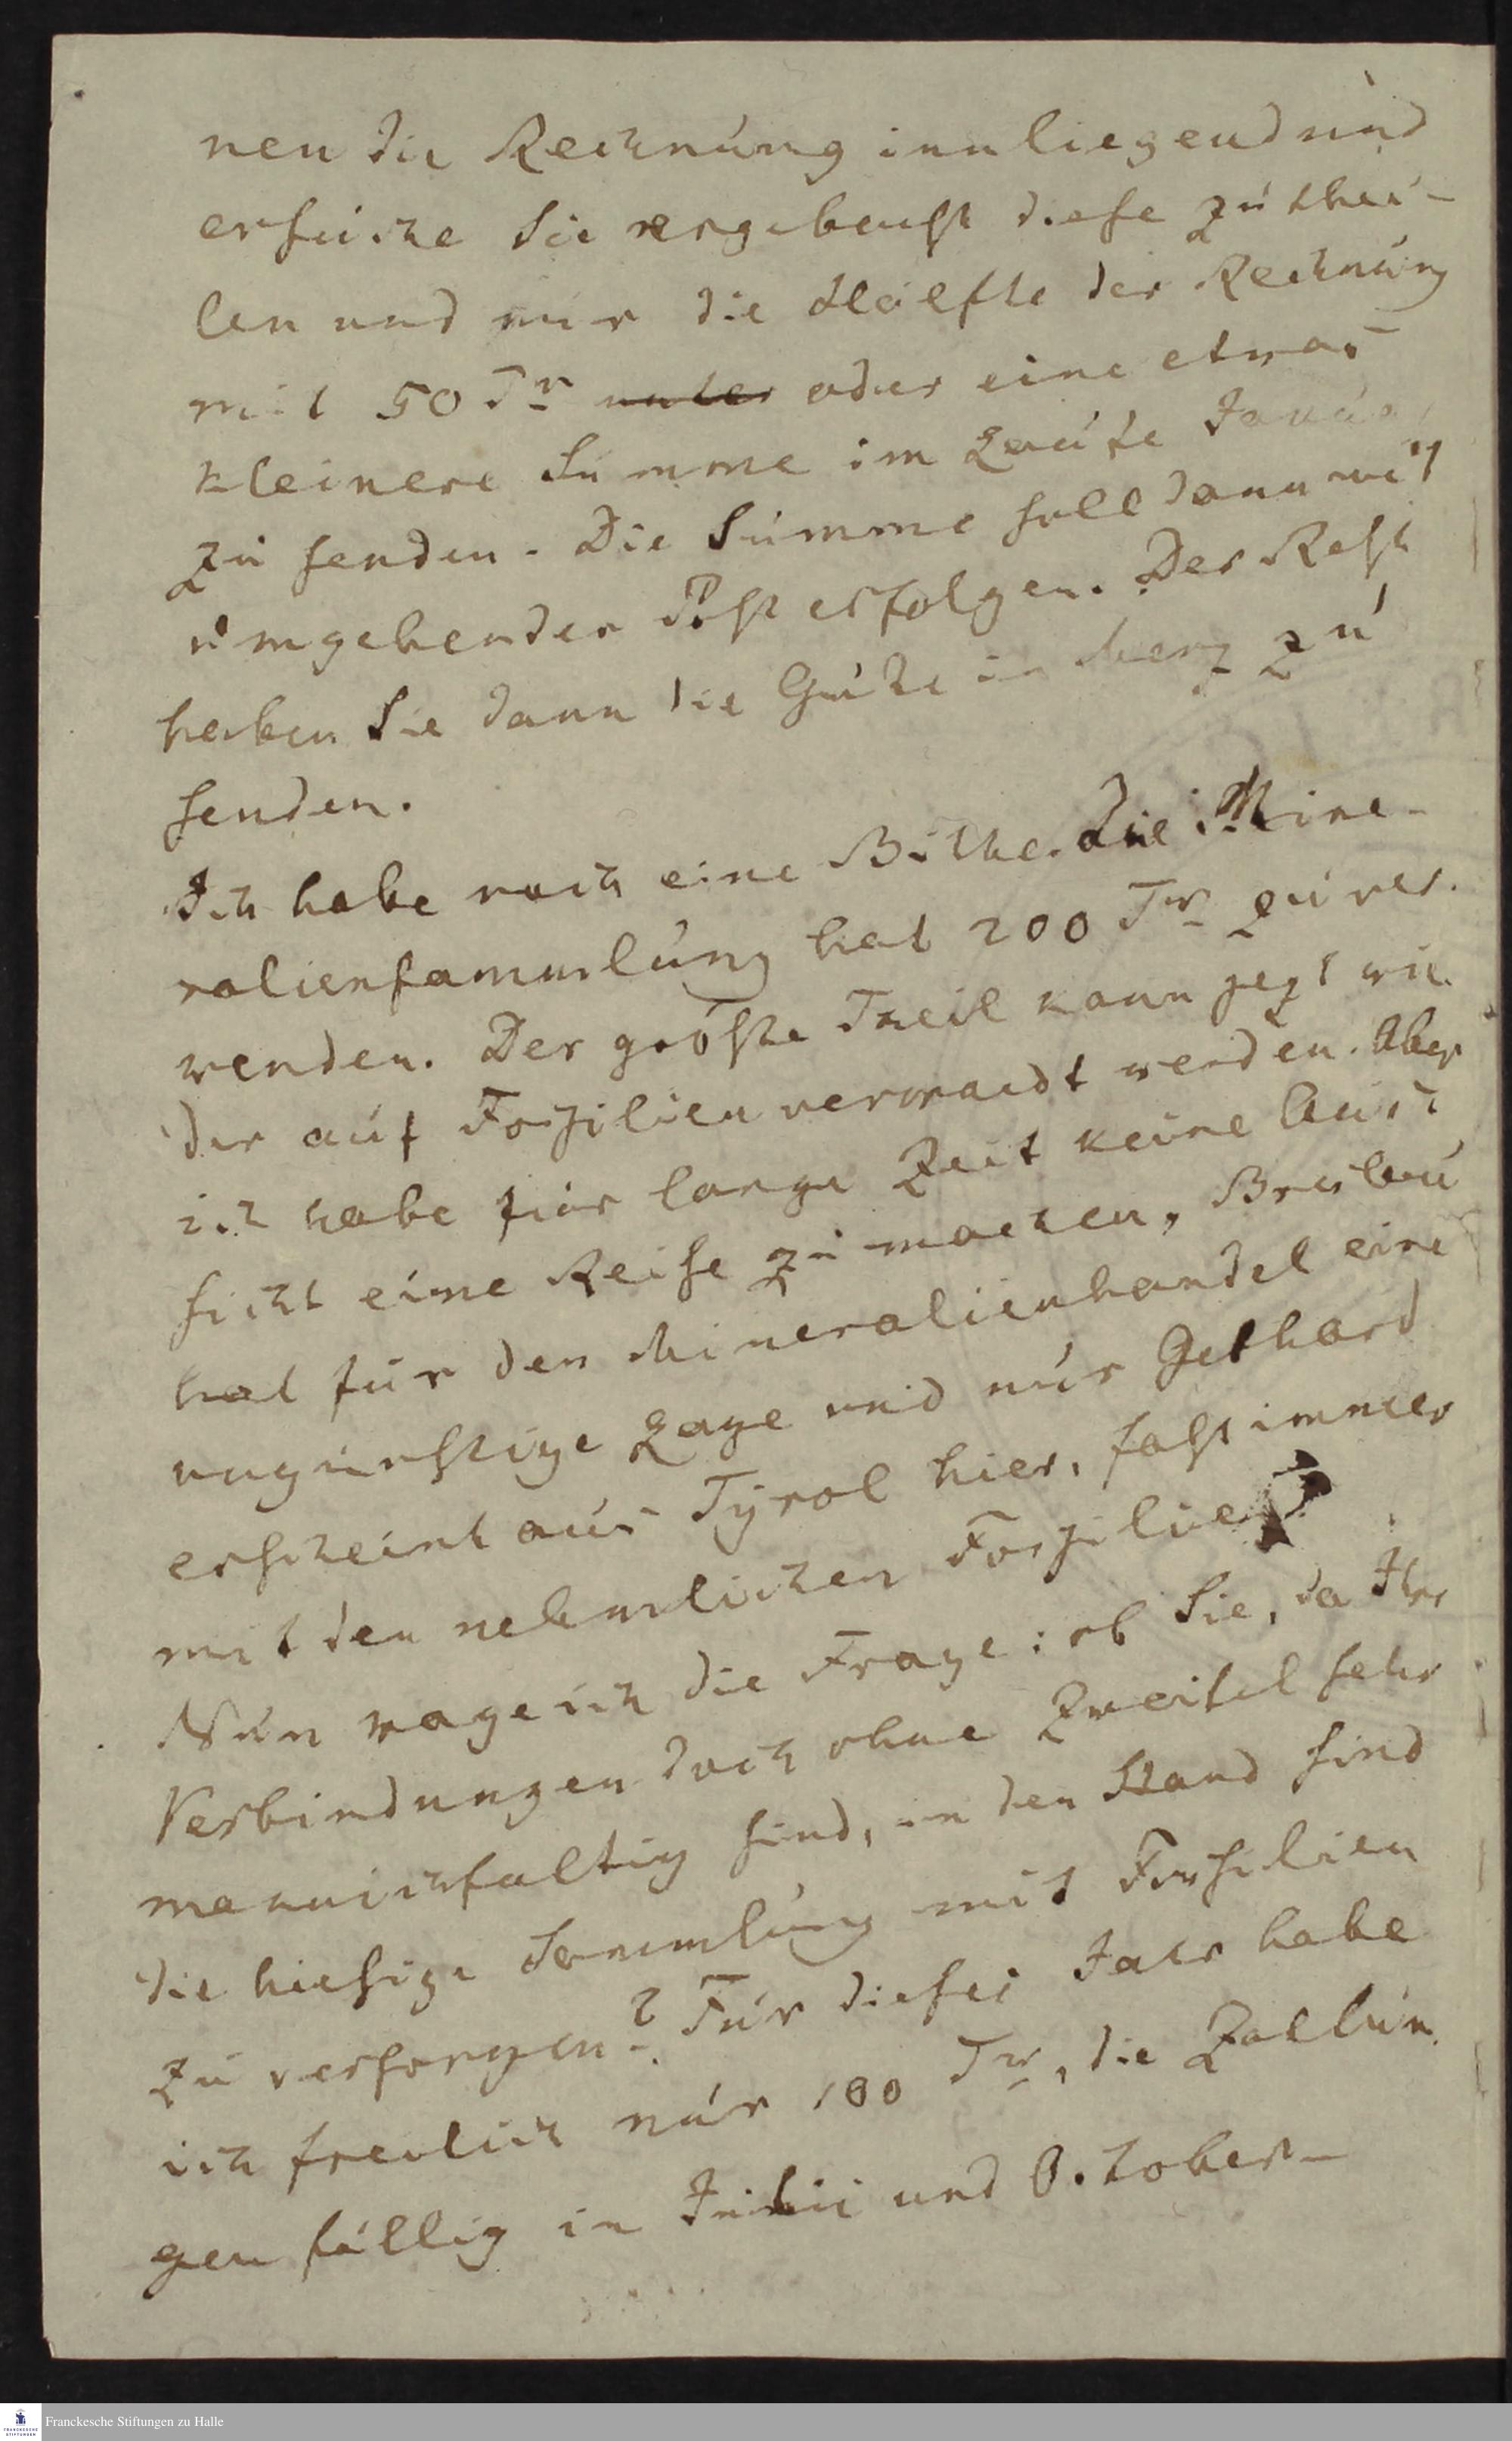 nen die Rechnung innliegend und
ersuche Sie ergebenst diese zu thei-
len und mir die Haelfte der Rechnung
mit 50 Tr unter oder eine etwas
kleinere Summe im Laufe Januar
zu senden. Die Summe soll dann mit
umgehender Post erfolgen. Der Rest
haben Sie dann die Güte in Merz zu
senden.
Ich habe noch eine Bitte. Die Mine-
raliensammlung hat 200 Tr zu ver-
wenden. Der größte Theil kann jezt wie-
der auf Foßilien verwandt werden. Aber
ich habe für lange Zeit keine Aus-
sicht eine Reise zu machen, Breslau
hat für den Mineralienhandel eine
ungünstige Lage und nur Gebhard
erscheint aus Tyrol hier, fast immer
mit den nehmlichen Foßilien
Nun wage ich die Frage: ob Sie, da Ihre
Verbindungen doch ohne Zweifel sehr
mannichfaltig sind, in den Stand sind
die hiesige Sammlung mit Fossilien
zu versorgen? Für dieses Jahr habe
ich freilich nur 100 Tr, die Zallun-
gen fällig in Julii und October-
Franckesche Stiftungen zu Halle